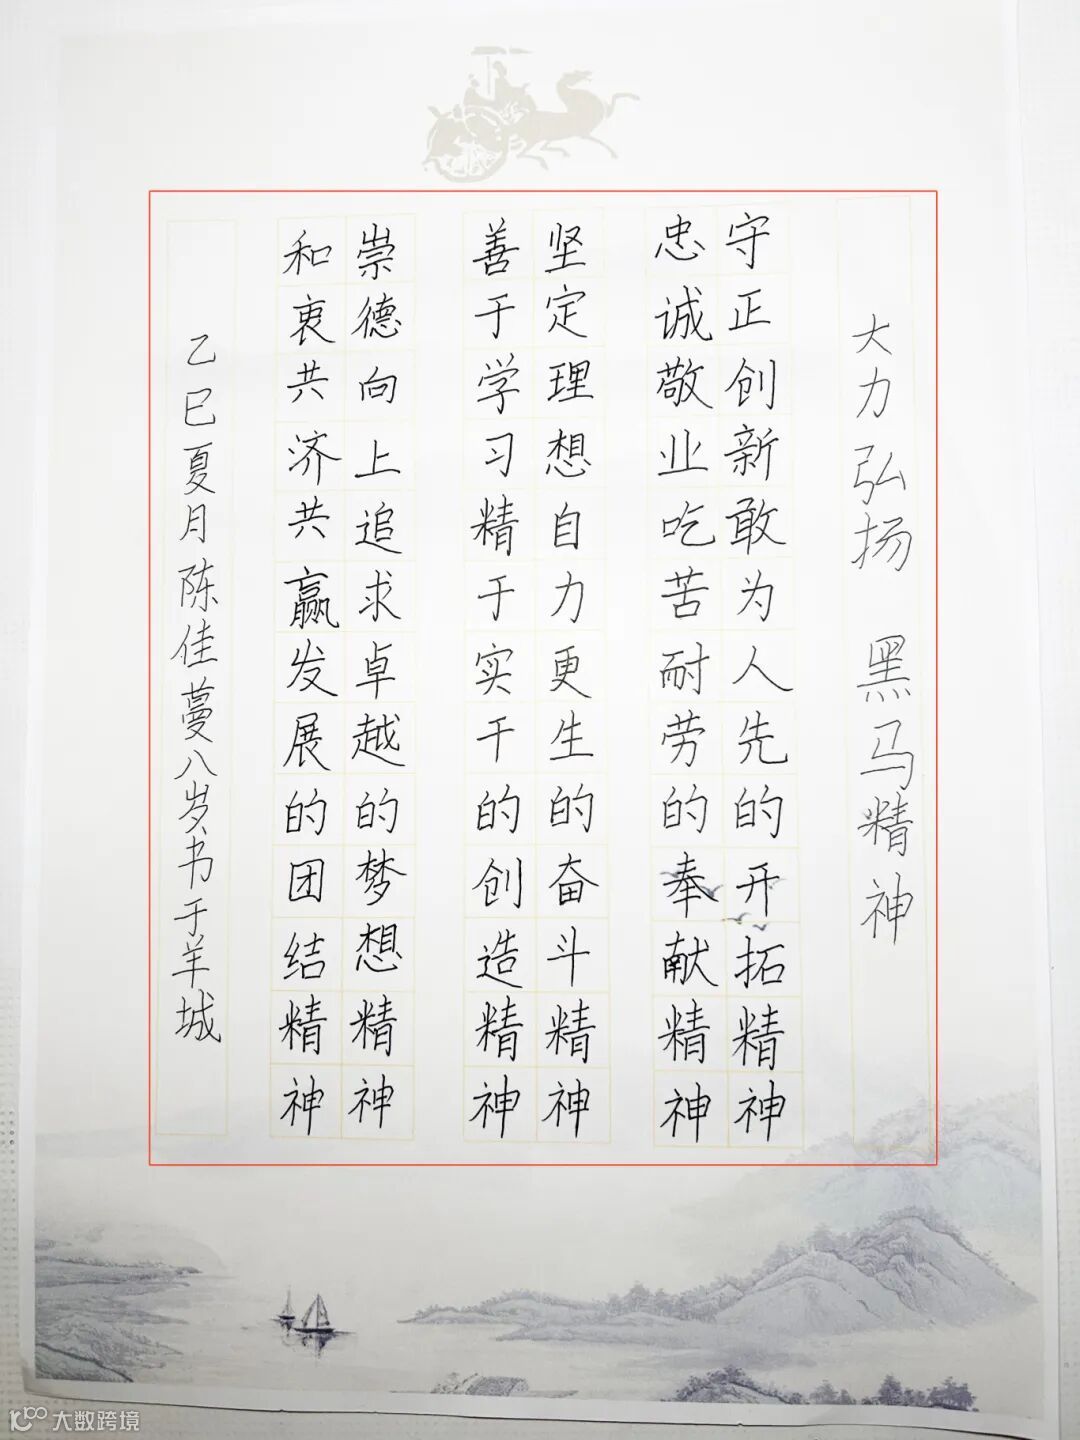 大力弘扬 黑马精神
守正创新敢为人先的开拓精神
忠诚敬业吃苦耐劳的奉献精神
坚定理想自力更生的奋斗精神
善于学习精于实干的创造精神
崇德向上追求卓越的梦想精神
和衷共济共赢发展的团结精神
乙巳夏月陈佳蔓八岁书于羊城
大数跨境